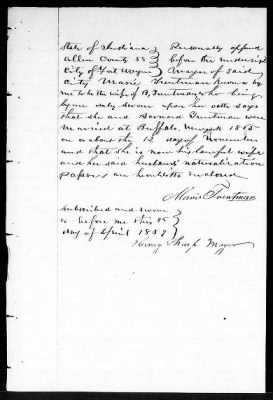 State of Indiana } Personally appeard
Allen County SS } before the undersigd
City of Fort Wayne } Mayor of said
City Marie Trentman known by
me to be the wife of B. Trentman who being
by me duly sworn upon his oath says
that she and Barnard Trentman were
Married at Buffalo, Newyork 1865
on or about the 12 day of November
and that she is now his lawful wife
and he said husband naturalization
papers are herewith enclosed
Marie Trentman
Subscribed and sworn
to before me this 25
day of April 1859
Henry Sharp Mayor